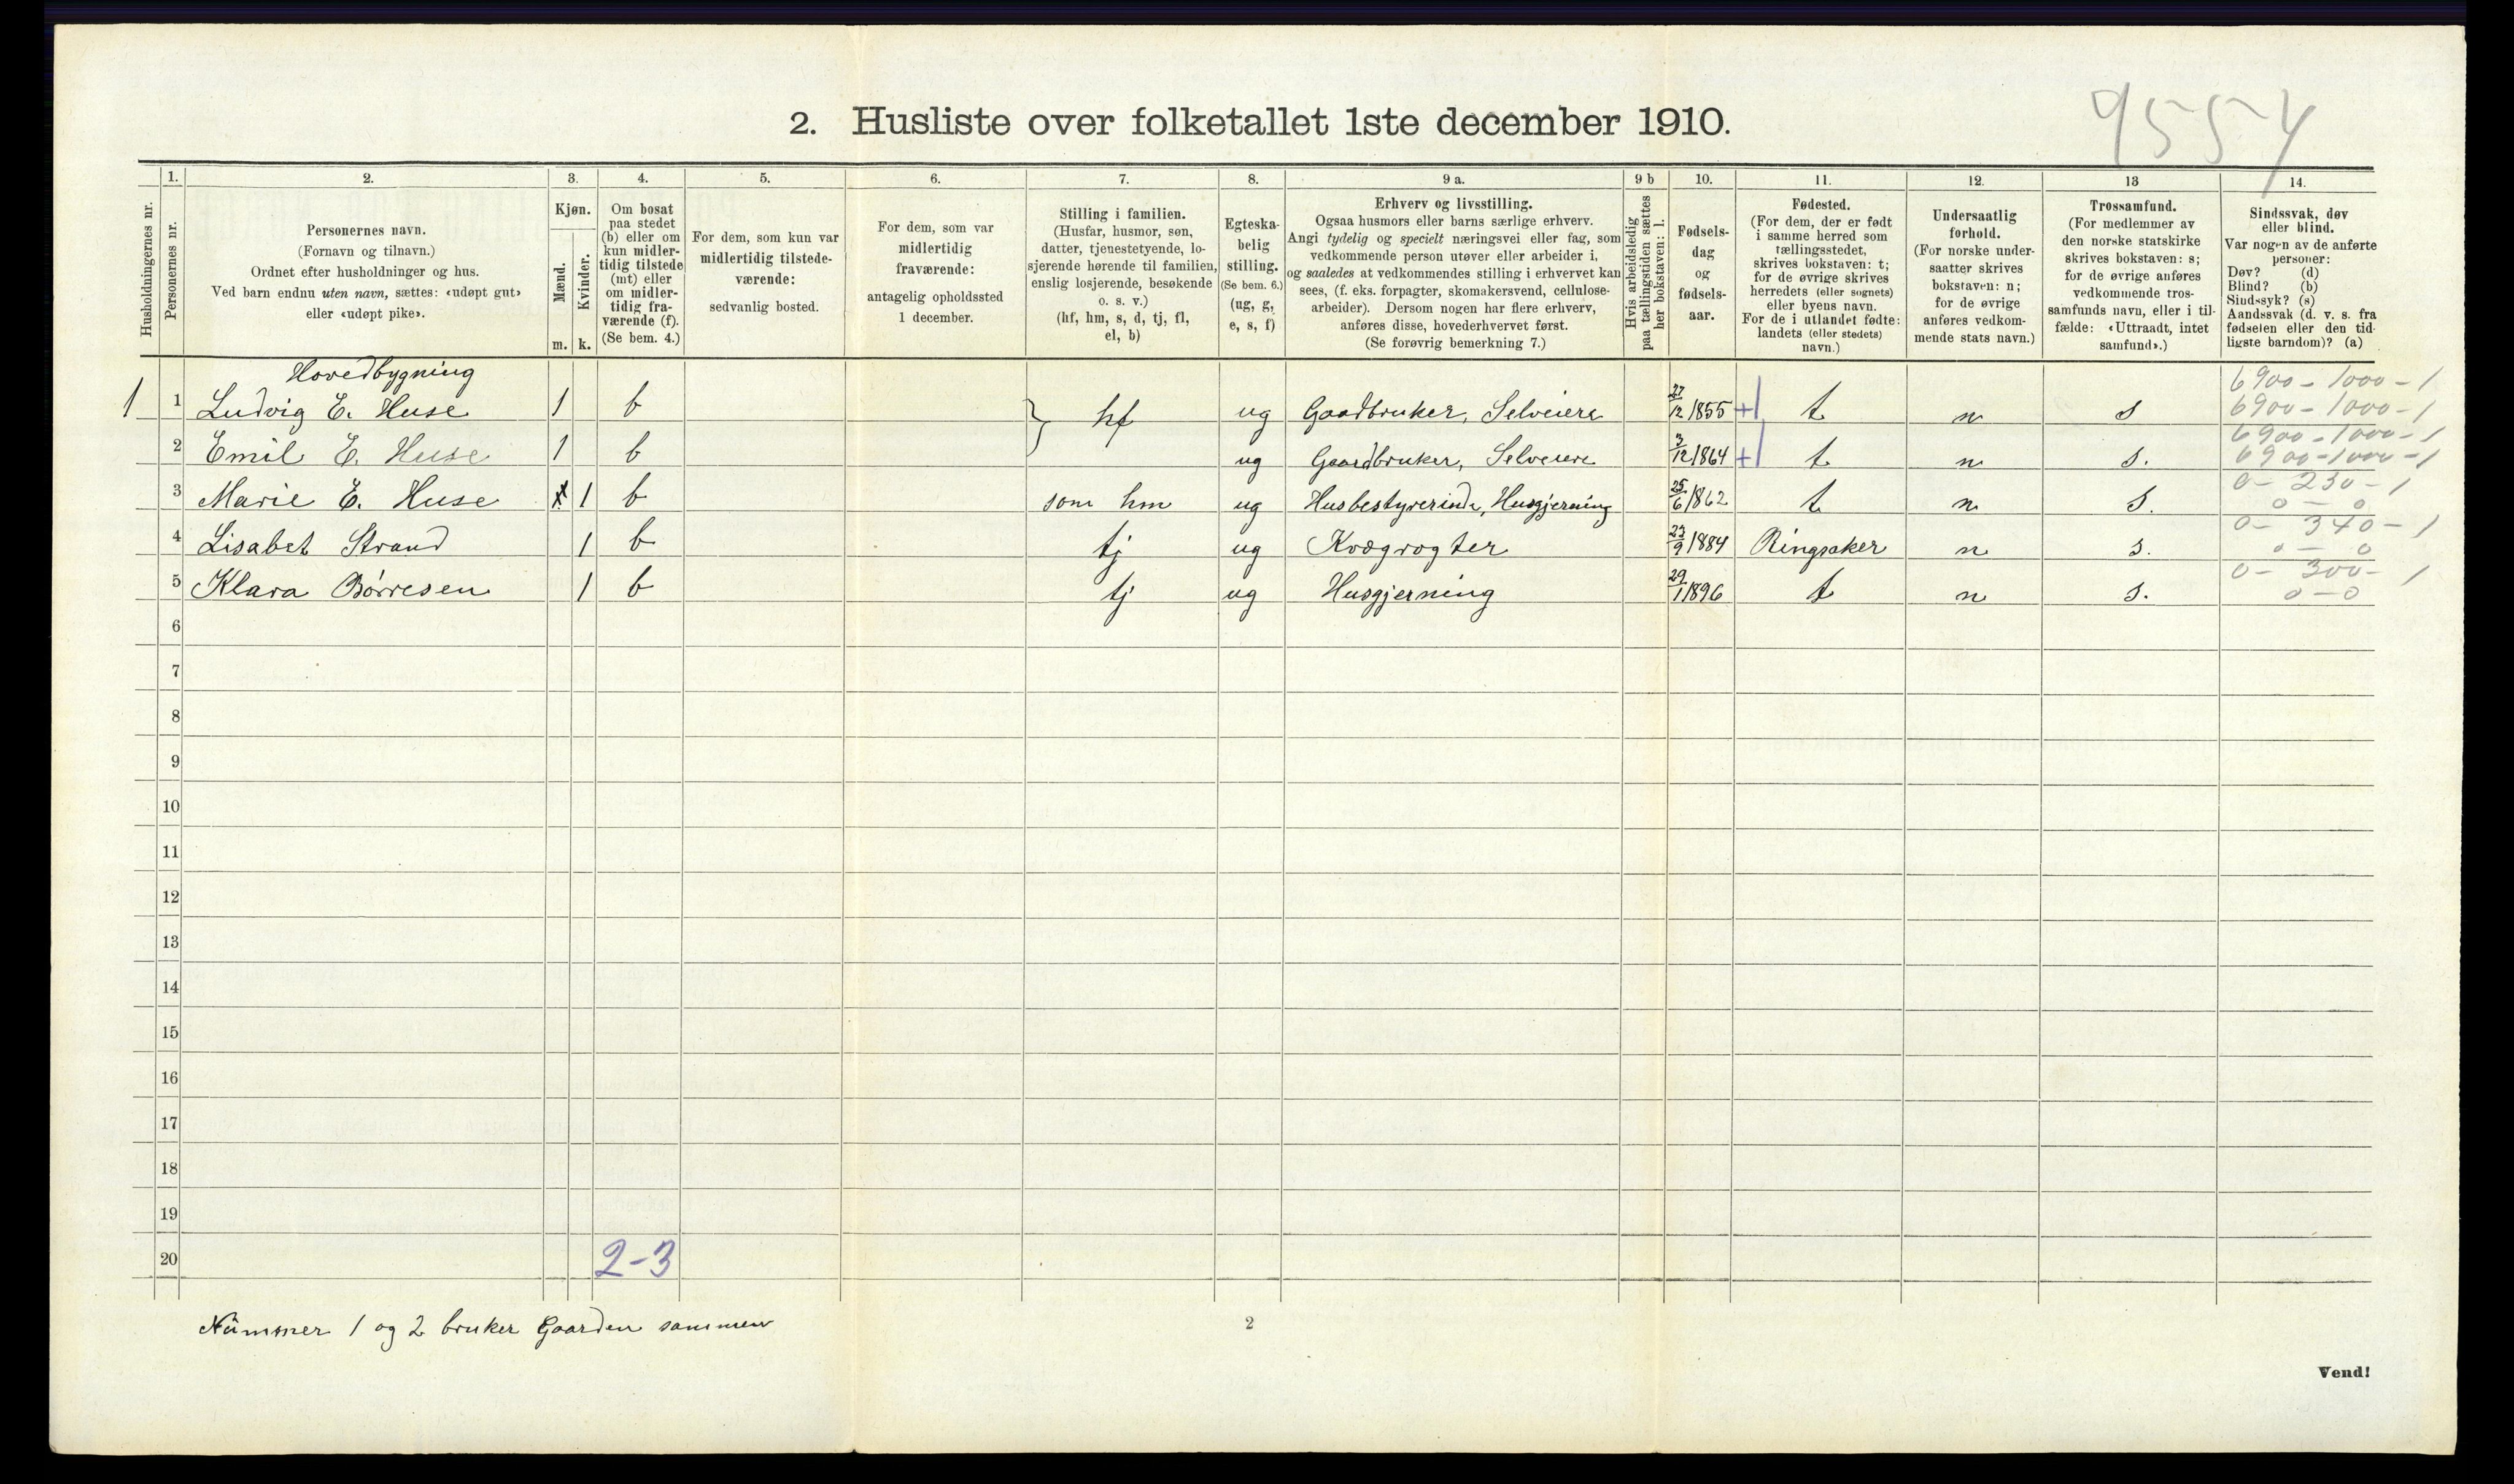 9554
2. Husliste over folketallet 1ste december 1910.
Husholdningernes nr.
1.
Personernes nr.
2.
Personernes navn.
(Fornavn og tilnavn.)
Ordnet efter husholdninger og hus.
Ved barn endnu uten navn, sættes: «udøpt gut»
eller «udøpt pike».
3.
Kjøn.
Mænd.
Kvinder.
m. k.
4.
Om bosat
paa stedet
(b) eller om
kun midler-
tidig tilstede
(mt) eller
om midler-
tidig fra-
værende (f).
(Se bem. 4.)
5.
For dem, som kun var
midlertidig tilstede-
værende:
sedvanlig bosted.
6.
For dem, som var
midlertidig
fraværende:
antagelig opholdssted
1 december.
7.
Stilling i familien.
(Husfar, husmor, søn,
datter, tjenestetyende, lo-
sjerende hørende til familien,
enslig losjerende, besøkende
o. s. v.)
(hf, hm, s, d, tj, fl,
el, b)
8.
Egteska-
belig
stilling.
(Se bem. 6.)
(ug, g,
e, s, f)
9 a.
Erhverv og livsstilling.
Ogsaa husmors eller barns særlige erhverv.
Angi tydelig og specielt næringsvei eller fag, som
vedkommende person utøver eller arbeider i,
og saaledes at vedkommendes stilling i erhvervet kan
sees, (f. eks. forpagter, skomakersvend, cellulose-
arbeider). Dersom nogen har flere erhverv,
anføres disse, hovederhvervet først.
(Se forøvrig bemerkning 7.)
9 b
Hvis arbeidsledig
paa tællingstiden sættes
her bokstaven: l.
10.
Fødsels-
dag
og
fødsels-
aar.
11.
Fødested.
(For dem, der er født
i samme herred som
tællingsstedet,
skrives bokstaven: t;
for de øvrige skrives
herredets (eller sognets)
eller byens navn.
For de i utlandet fødte:
landets (eller stedets)
navn.)
12.
Undersaatlig
forhold.
(For norske under-
saatter skrives
bokstaven: n;
for de øvrige
anføres vedkom-
mende stats navn.)
13
Trossamfund.
(For medlemmer av
den norske statskirke
skrives bokstaven: s;
for de øvrige anføres
vedkommende tros-
samfunds navn, eller i til-
fælde: «Uttraadt, intet
samfund».)
14.
Sindssvak, døv
eller blind.
Var nogen av de anførte
personer:
Døv? (d)
Blind? (b)
Sindssyk? (s)
Aandssvak (d. v. s. fra
fødselen eller den tid-
ligste barndom)? (a)
Hovedbygning
6900 - 1000 - 1
1 1 Ludvig E. Huse 1 b } hf ug Gaadbruker, Selveiere 22/12 1855 +1 t n s 6900 - 1000 - 1
6900 - 1000 - 1
2 Emil E. Huse 1 b ug Gaardbruker, Selveiere 3/12 1864 +1 t n s. 6900 - 1000 - 1
0 - 230 - 1
3 Marie E. Huse 1 b som hm ug Husbestyrerinde, Husgjerning 25/6 1862 t n s. 0 - 0
0 - 340 - 1
4 Lisabet Strand 1 b tj ug Kvægrogter 23/9 1884 Ringsaker n s. 0 - 0
0 - 300 - 1
5 Klara Børresen 1 b tj ug Husgjerning 29/1 1896 t n s. 0 - 0
6
7
8
9
10
11
12
13
14
15
16
17
18
19
20 2-3
Nŭmmer 1 og 2 bruker Gaarden sammen
2
Vend!